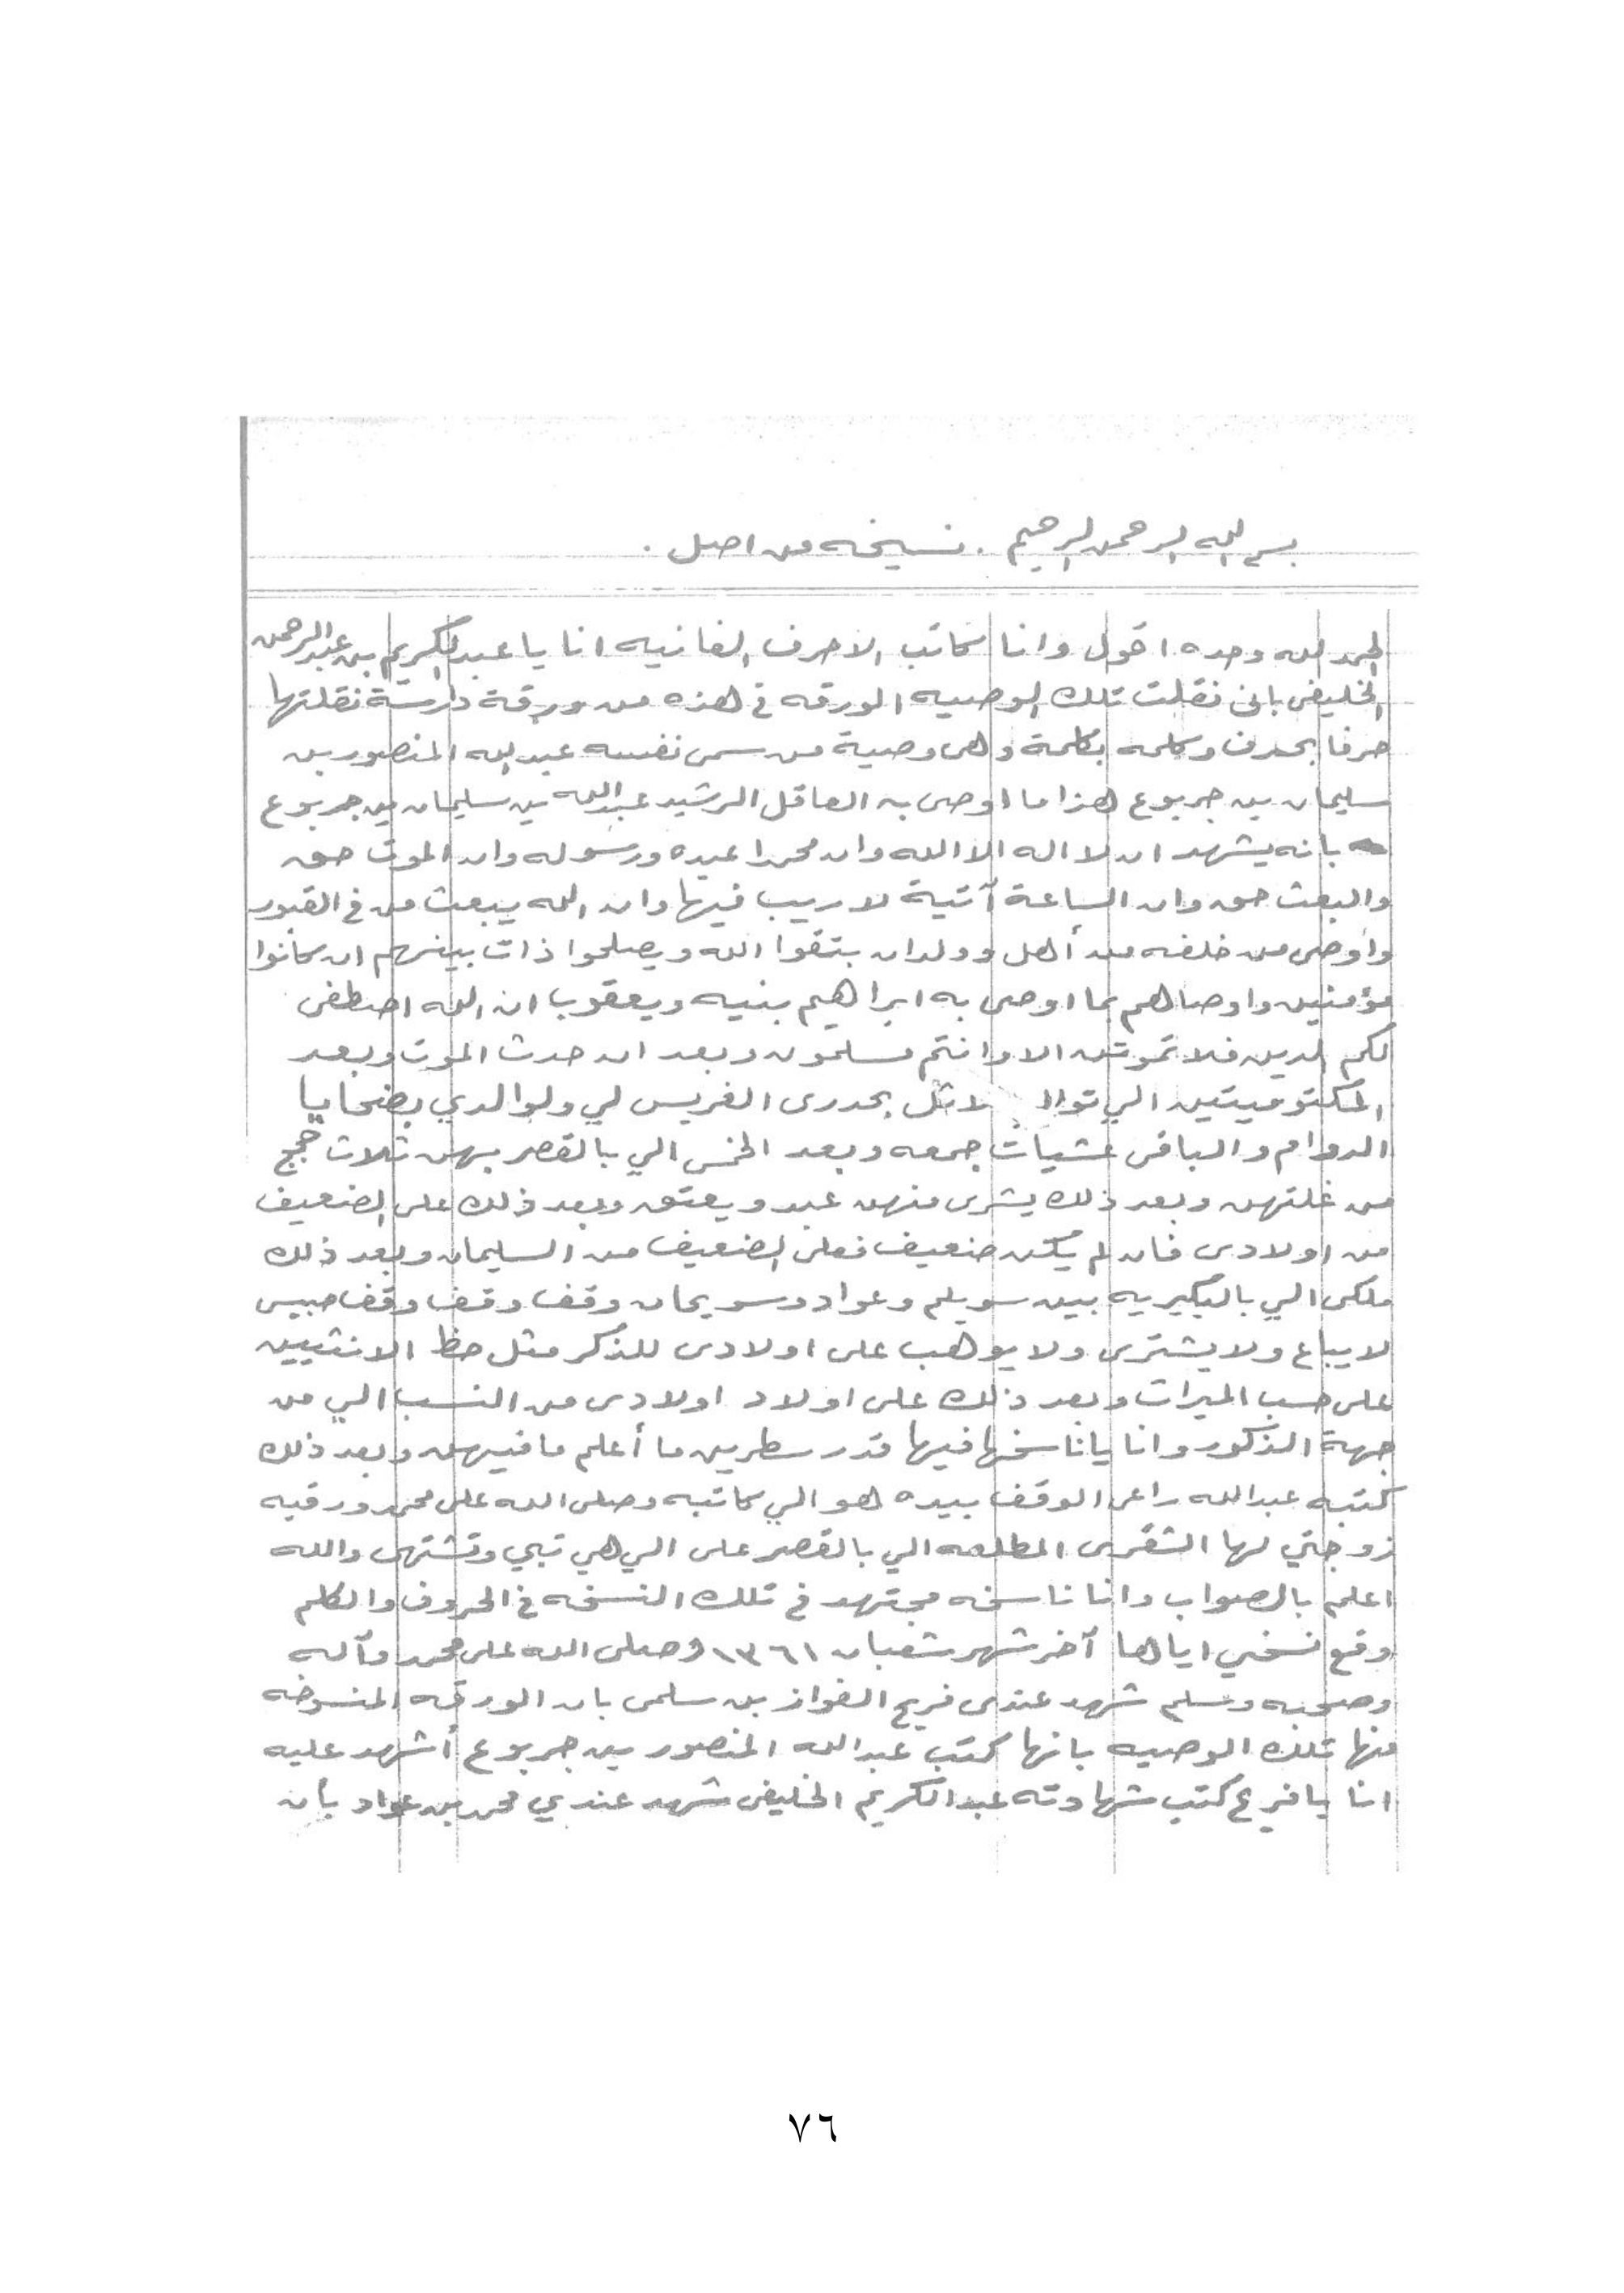 بسم الله الرحمن الرحيم . نسيخه من اصل .
الحمد لله وحده اقول وانا كاتب الاحرف الفانيه انا يا عبدالكريم بن عبدالرحمن
الخليفى بانى نقلت تلك الوصيه الورقه في هذه من ورقة دارسة نقلتها
حرفا بحرف وكلمه بكلمة وهى وصية من سمى نفسه عبدالله المنصور بن
سليمان بن جربوع هذا ما اوصى به العاقل الرشيد عبدالله بن سليمان بن جربوع
بانه يشهد ان لا اله الا الله وان محمدا عبده ورسوله وان الموت حق
والبعث حق وان الساعة آتية لا ريب فيها وان الله يبعث من في القبور
واوصى من خلفه من أهل وولدان يتقوا الله ويصلحوا ذات بينهم ان كانوا
مؤمنين واوصاهم بما اوصى به ابراهيم بنيه ويعقوب ان الله اصطفى
لكم الدين فلا تموتن الا وانتم مسلمون وبعد ان حدث الموت وبعد
المكتوميتين الي توالا لاثل بحدرى الفريس لي ولوالدي بضحايا
الدوام والباقى عشيات جمعه وبعد الخمس الي بالقصر بهن ثلاث حجج
من غلتهن وبعد ذلك يشرى منهن عبد ويعتق وبعد ذلك على الضعيف
من اولادى فان لم يكن ضعيف فعلى الضعيف من السليمان وبعد ذلك
ملكى الي بالبكيريه بين سويلم وعواد وسويحان وقف وقف وقف حبيس
لا يباع ولا يشترى ولا يوهب على اولادى للذكر مثل حظ الانثيين
على حسب الميراث وبعد ذلك على اولاد اولادى من النسب الي من
جهة الذكور وانا يا ناسخها فيها قدر سطرين ما أعلم ما فيهن وبعد ذلك
كتبه عبدالله راعى الوقف بيده هو الي كاتبه وصلى الله على محمد ورقيه
زوجتي لها الشقرى المطلعه الي بالقصر على الي هي تبي وتشتهى والله
اعلم بالصواب وانا ناسخه مجتهد في تلك النسخه في الحروف والكلم
وقع نسخي اياها آخر شهر شعبان ١٣٦١ وصلى الله على محمد وآله
وصحبه وسلم شهد عندى فريح الفواز بن سلمى بان الورقه المنسوخه
منها تلك الوصيه بانها كتب عبدالله المنصور بن جربوع أشهد عليه
انا يا فريح كتب شهادته عبدالكريم الخليفى شهد عندي محمد بن عواد بأن
٧٦